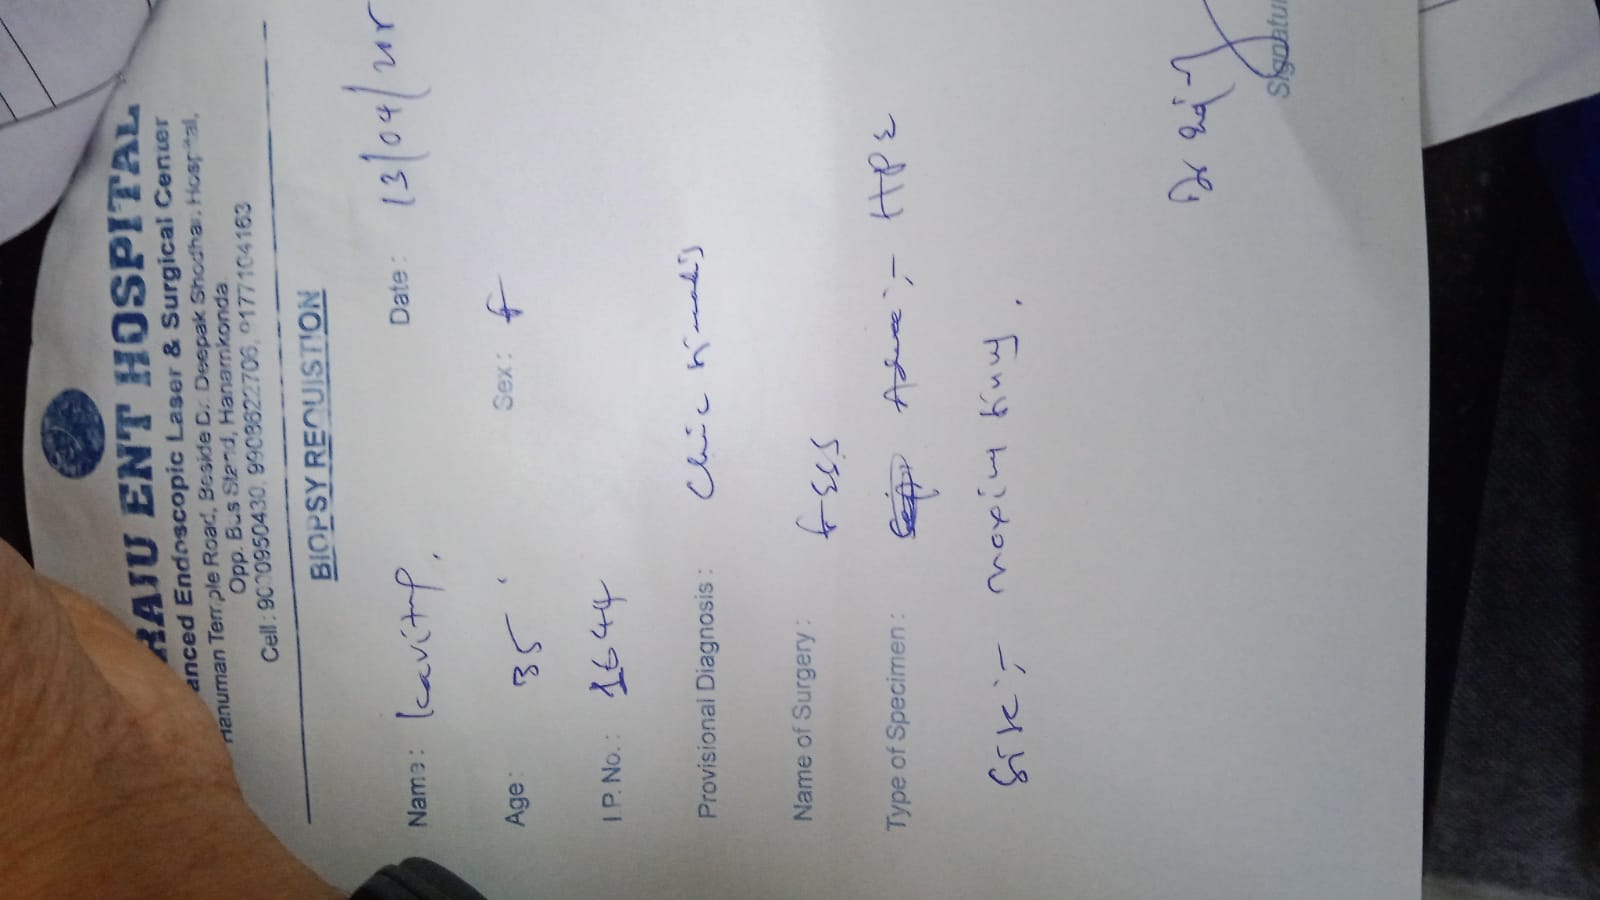 RAJU ENT HOSPITAL
anced Endoscopic Laser & Surgical Center
Hanuman Temple Road, Beside Dr. Deepak Shodhan Hospital,
Opp. Bus Stand, Hanamkonda
Cell : 9000950430, 9908822706, 9177104163
BIOPSY REQUISTION
Name : Kavitha. Date : 13/04/
Age : 35 Sex : F
I.P. No. : 1644
Provisional Diagnosis : Sinusitis
Name of Surgery : FESS
Type of Specimen : Advice :- HPE
Site :- maxillary sinus.
Dr
Signatu